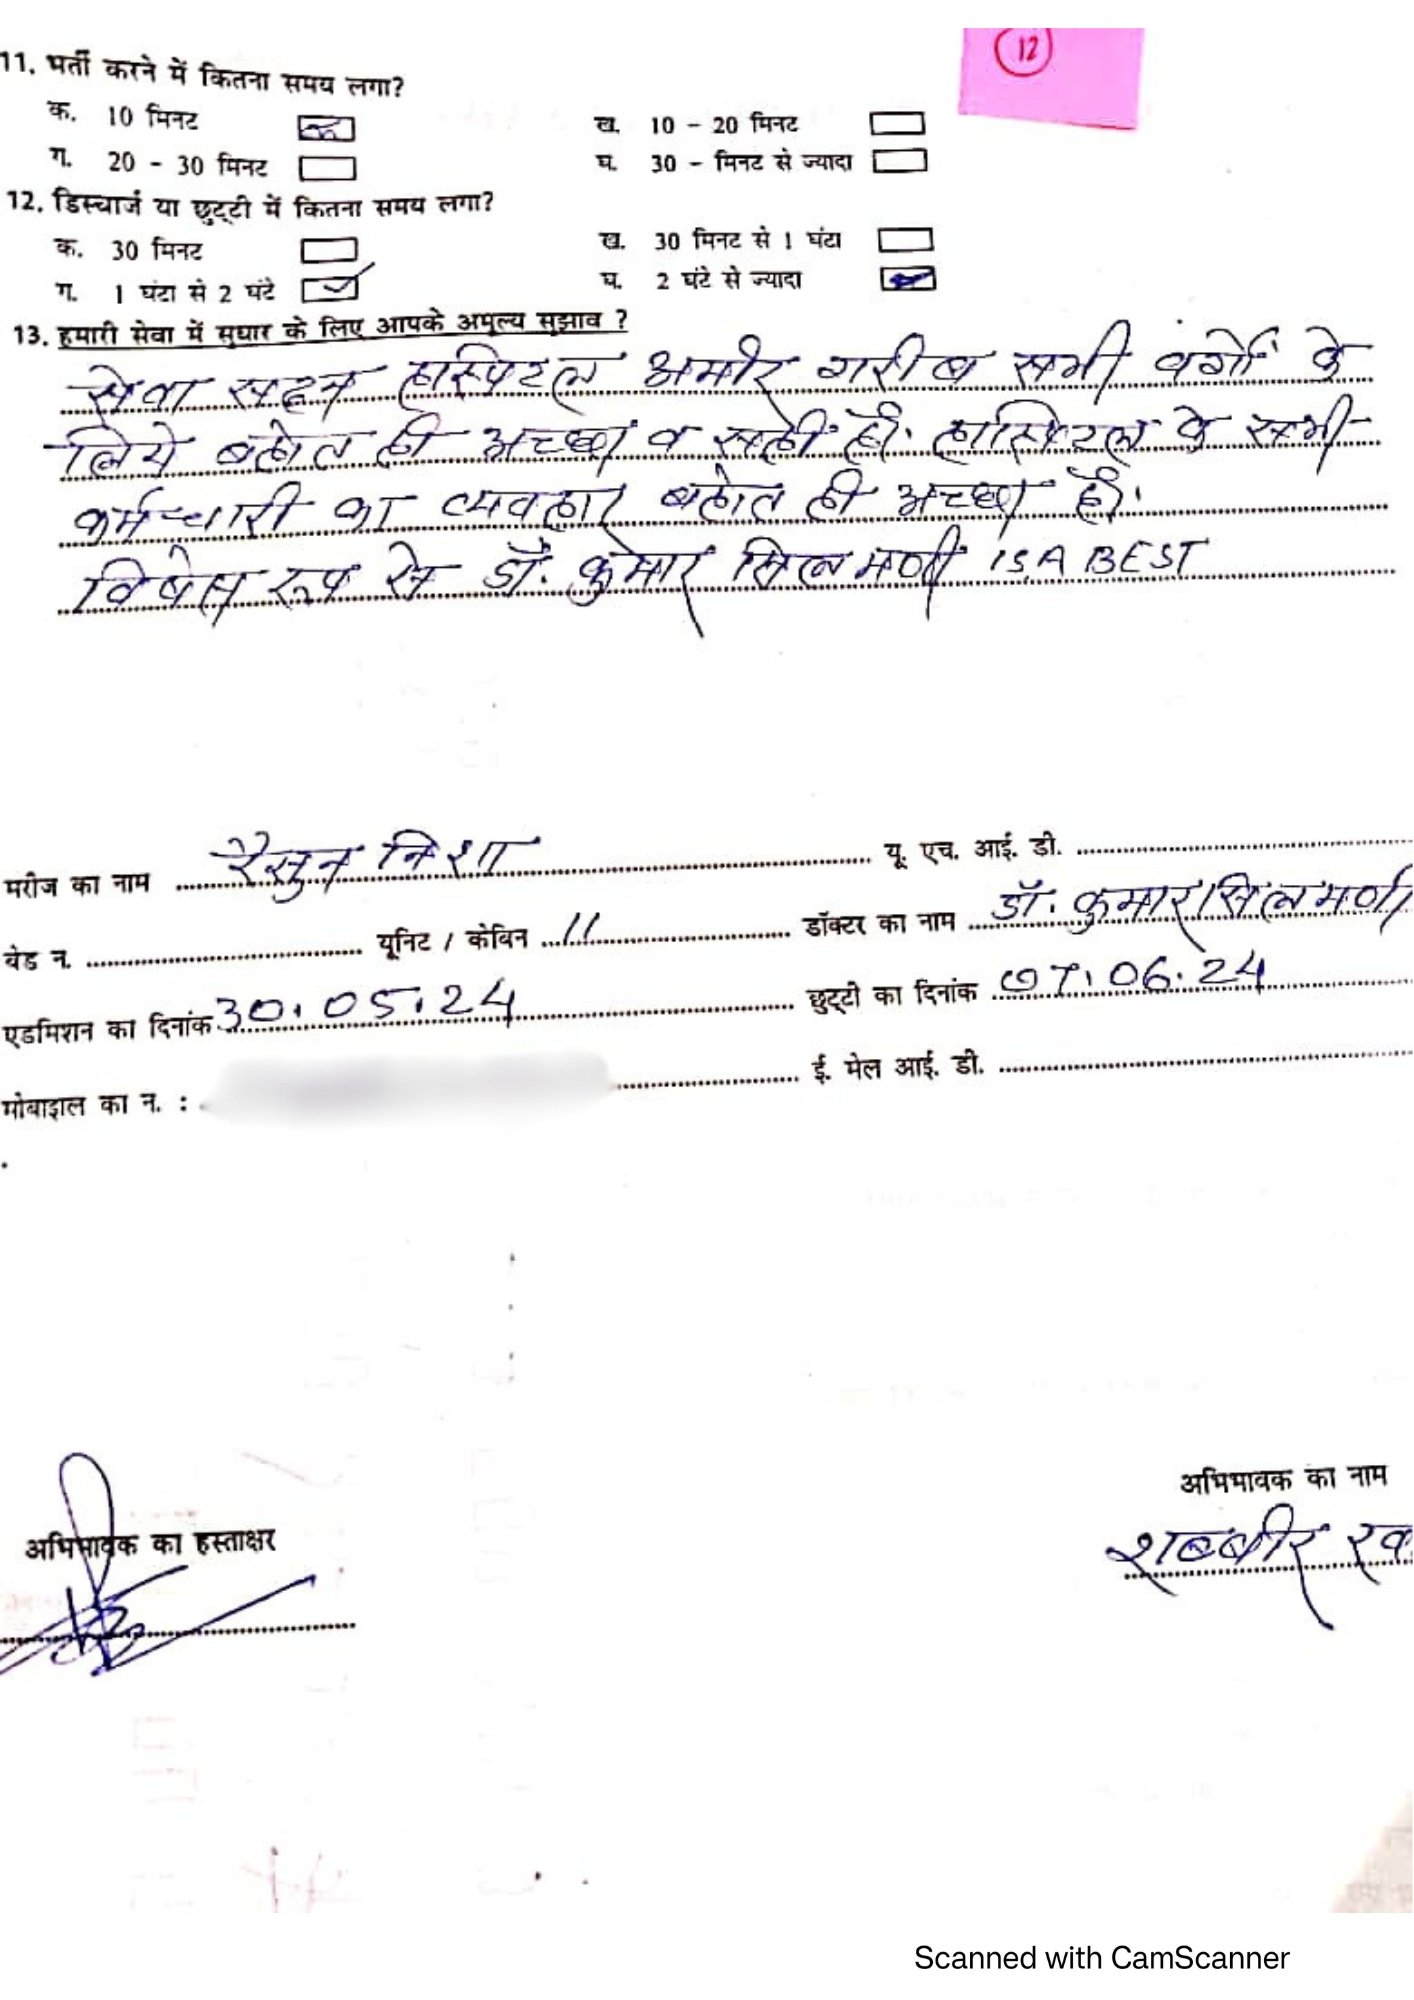 12
11. भर्ती करने में कितना समय लगा?
क. 10 मिनट ख. 10 - 20 मिनट
ग. 20 - 30 मिनट घ. 30 - मिनट से ज्यादा
12. डिस्चार्ज या छुट्टी में कितना समय लगा?
क. 30 मिनट ख. 30 मिनट से 1 घंटा
ग. 1 घंटा से 2 घंटे घ. 2 घंटे से ज्यादा
13. हमारी सेवा में सुधार के लिए आपके अमूल्य सुझाव ?
सेवा सदन हास्पिटल अमीर गरीब सभी वर्गों के
लिये बहोत ही अच्छा व सही है. हास्पिटल के सभी
कर्मचारी का व्यवहार बहोत ही अच्छा है.
विषेस रूप से डॉ. कुमार सिलमणी IS A BEST
मरीज का नाम रैसुन निशा यू. एच. आई. डी.
बेड न. यूनिट / केबिन 11 डॉक्टर का नाम डॉ. कुमार सिलमणी
एडमिशन का दिनांक 30.05.24 छुट्टी का दिनांक 07.06.24
मोबाइल का न. : ई. मेल आई. डी.
अभिभावक का नाम
अभिभावक का हस्ताक्षर शब्बीर
Scanned with CamScanner